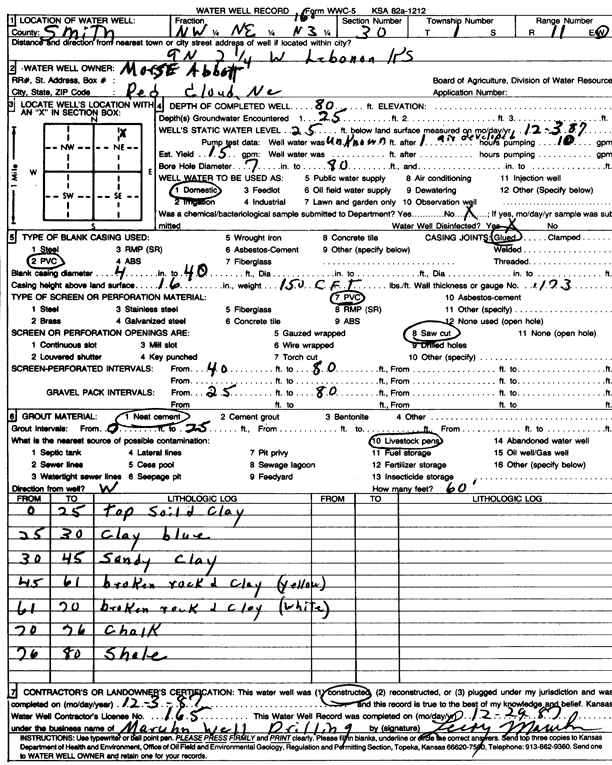 WATER WELL RECORD Form WWC-5 KSA 82a-1212
1 LOCATION OF WATER WELL: Fraction Section Number Township Number Range Number
County: Smith NW ¼ NE ¼ ¼ 30 T 1 S R 11 E/W
Distance and direction from nearest town or city street address of well if located within city?
9N 2 1/4 W Lebanon KS
2 WATER WELL OWNER: Morse Abbott
RR#, St. Address, Box # : Board of Agriculture, Division of Water Resource
City, State, ZIP Code : Red Cloud, Ne Application Number:
3 LOCATE WELL'S LOCATION WITH AN "X" IN SECTION BOX: 4 DEPTH OF COMPLETED WELL 80 ft. ELEVATION:
Depth(s) Groundwater Encountered 1. 25 ft. 2. ft. 3. ft.
WELL'S STATIC WATER LEVEL 25 ft. below land surface measured on mo/day/yr 12-3-87
Pump test data: Well water was unknown ft. after 1 air developed hours pumping 10 gpm
Est. Yield 15 gpm: Well water was ft. after hours pumping gpm
Bore Hole Diameter 7 in. to 80 ft., and in. to ft.
WELL WATER TO BE USED AS: 5 Public water supply 8 Air conditioning 11 Injection well
1 Domestic 3 Feedlot 6 Oil field water supply 9 Dewatering 12 Other (Specify below)
2 Irrigation 4 Industrial 7 Lawn and garden only 10 Observation well
Was a chemical/bacteriological sample submitted to Department? Yes No X ; If yes, mo/day/yr sample was sub
mitted Water Well Disinfected? Yes X No
N
NW NE
W E
SW SE
S
1 Mile
X
5 TYPE OF BLANK CASING USED: 5 Wrought iron 8 Concrete tile CASING JOINTS: Glued Clamped
1 Steel 3 RMP (SR) 6 Asbestos-Cement 9 Other (specify below) Welded
2 PVC 4 ABS 7 Fiberglass Threaded
Blank casing diameter 4 in. to 40 ft., Dia in. to ft., Dia in. to ft.
Casing height above land surface 16 in., weight 150 C.F.T lbs./ft. Wall thickness or gauge No. .173
TYPE OF SCREEN OR PERFORATION MATERIAL: 7 PVC 10 Asbestos-cement
1 Steel 3 Stainless steel 5 Fiberglass 8 RMP (SR) 11 Other (specify)
2 Brass 4 Galvanized steel 6 Concrete tile 9 ABS 12 None used (open hole)
SCREEN OR PERFORATION OPENINGS ARE: 5 Gauzed wrapped 8 Saw cut 11 None (open hole)
1 Continuous slot 3 Mill slot 6 Wire wrapped 9 Drilled holes
2 Louvered shutter 4 Key punched 7 Torch cut 10 Other (specify)
SCREEN-PERFORATED INTERVALS: From 40 ft. to 80 ft., From ft. to ft.
From ft. to ft., From ft. to ft.
GRAVEL PACK INTERVALS: From 25 ft. to 80 ft., From ft. to ft.
From ft. to ft., From ft. to ft.
6 GROUT MATERIAL: 1 Neat cement 2 Cement grout 3 Bentonite 4 Other
Grout Intervals: From 0 ft. to 25 ft., From ft. to ft., From ft. to ft.
What is the nearest source of possible contamination: 10 Livestock pens 14 Abandoned water well
1 Septic tank 4 Lateral lines 7 Pit privy 11 Fuel storage 15 Oil well/Gas well
2 Sewer lines 5 Cess pool 8 Sewage lagoon 12 Fertilizer storage 16 Other (specify below)
3 Watertight sewer lines 6 Seepage pit 9 Feedyard 13 Insecticide storage
Direction from well? W How many feet? 60'
FROM TO LITHOLOGIC LOG FROM TO LITHOLOGIC LOG
0 25 top Soil & Clay
25 30 Clay blue
30 45 Sandy Clay
45 61 broken rock & Clay (yellow)
61 70 broken rock & Clay (white)
70 76 Chalk
76 80 Shale
7 CONTRACTOR'S OR LANDOWNER'S CERTIFICATION: This water well was (1) constructed, (2) reconstructed, or (3) plugged under my jurisdiction and was
completed on (mo/day/year) 12-3-87 and this record is true to the best of my knowledge and belief. Kansas
Water Well Contractor's License No. 165 This Water Well Record was completed on (mo/day/yr) 12-29-87
under the business name of Maruhn Well Drilling by (signature)
INSTRUCTIONS: Use typewriter or ball point pen. PLEASE PRESS FIRMLY and PRINT clearly. Please fill in blanks, underline or circle the correct answers. Send top three copies to Kansas
Department of Health and Environment, Office of Oil Field and Environmental Geology, Regulation and Permitting Section, Topeka, Kansas 66620-7500, Telephone: 913-862-9360. Send one
to WATER WELL OWNER and retain one for your records.